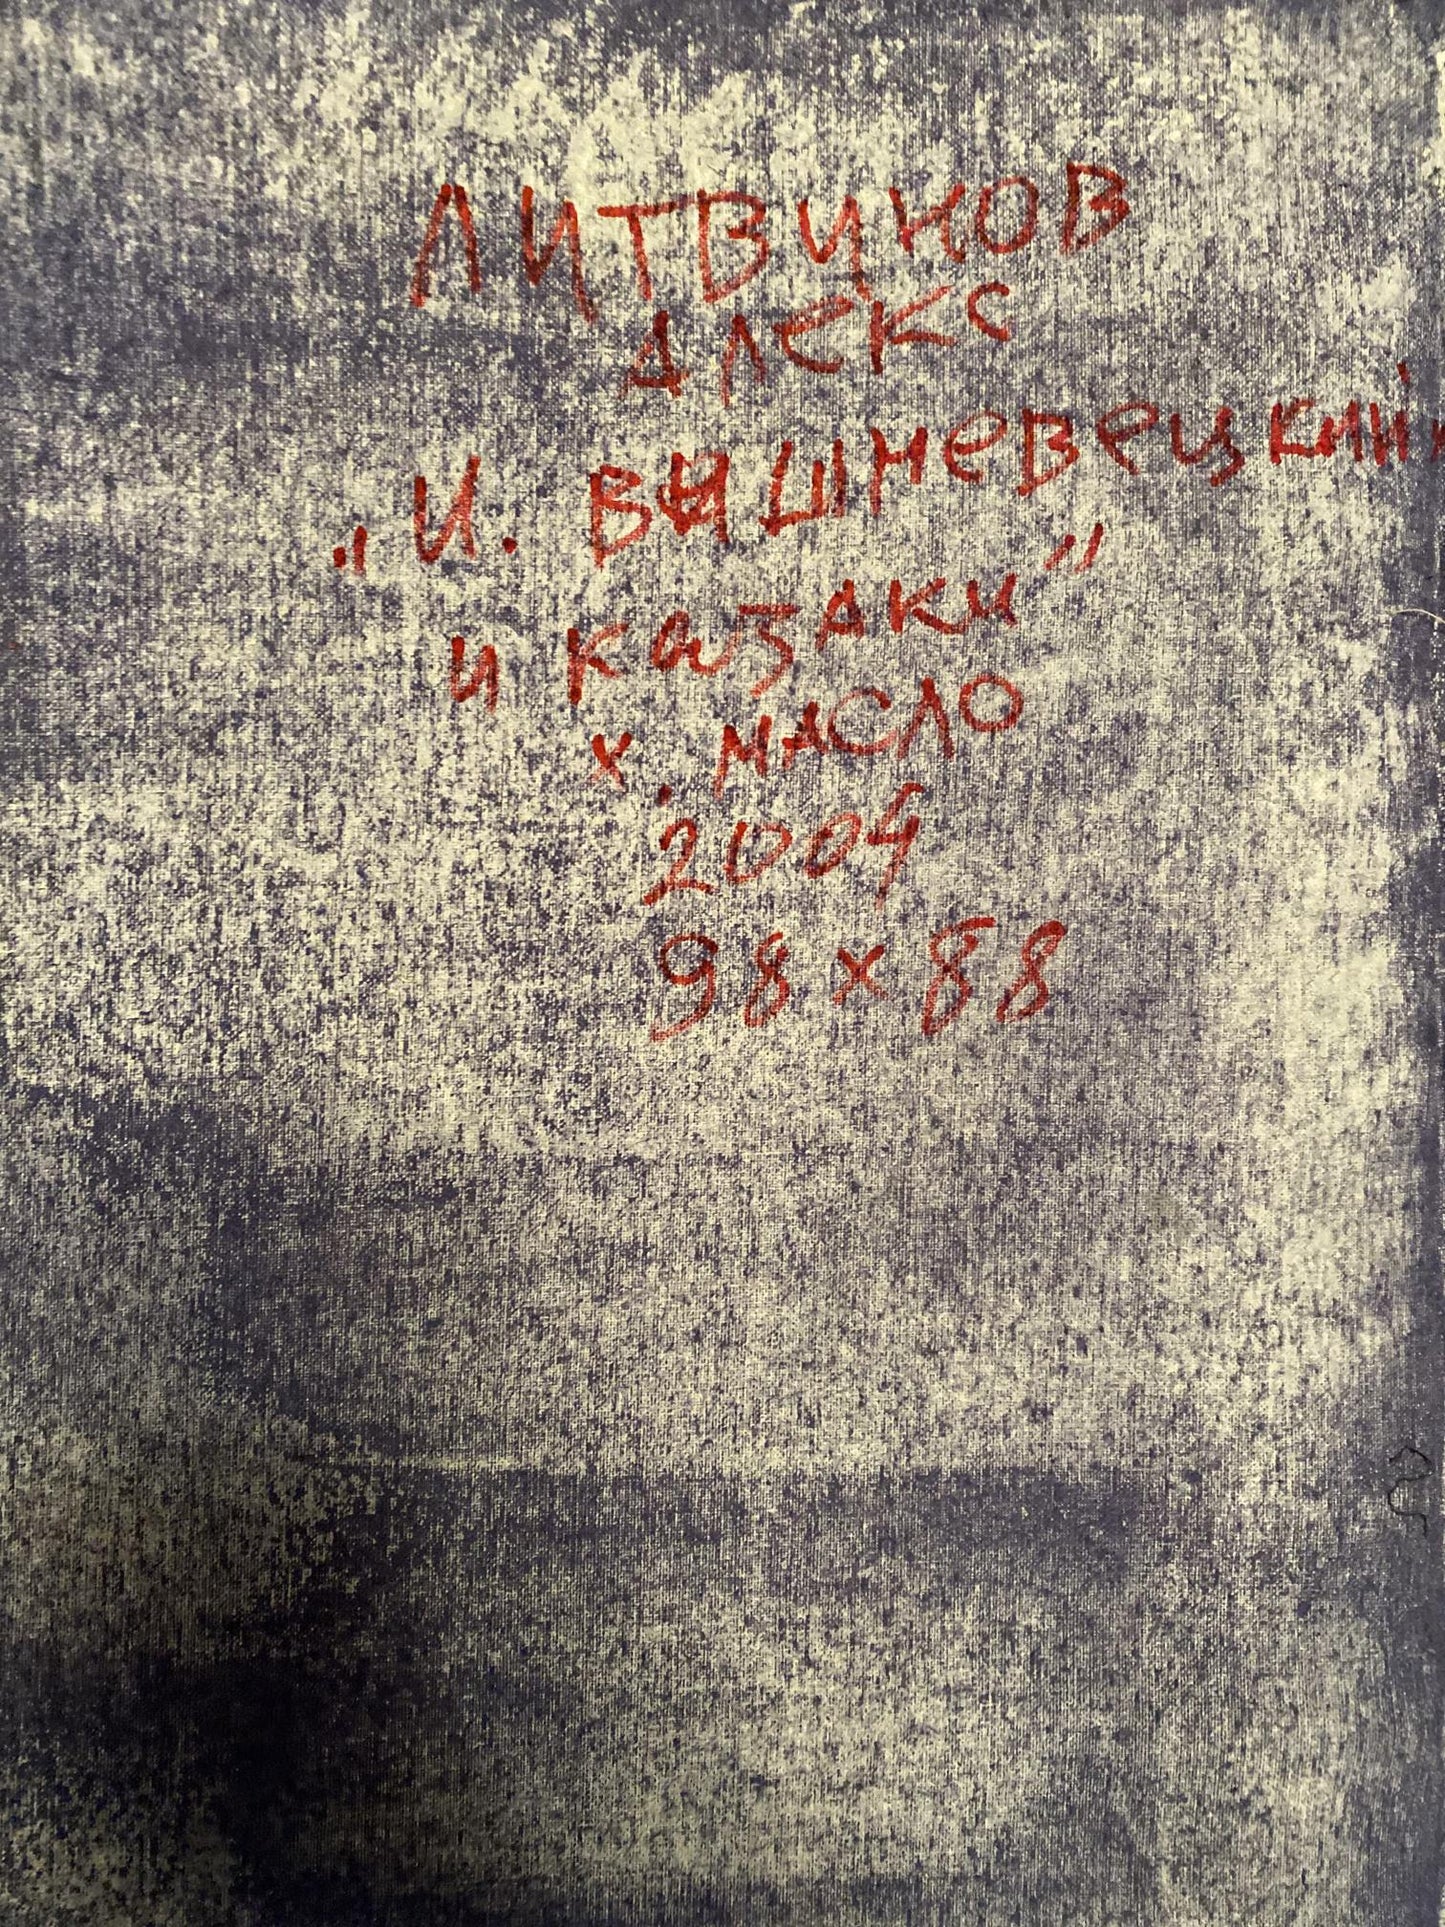 ЛИТВИНОВ
АЛЕКС
„И. ВЫШНЕВЕЦКИЙ
И КАЗАКИ"
х. МАСЛО
2004
98 x 88